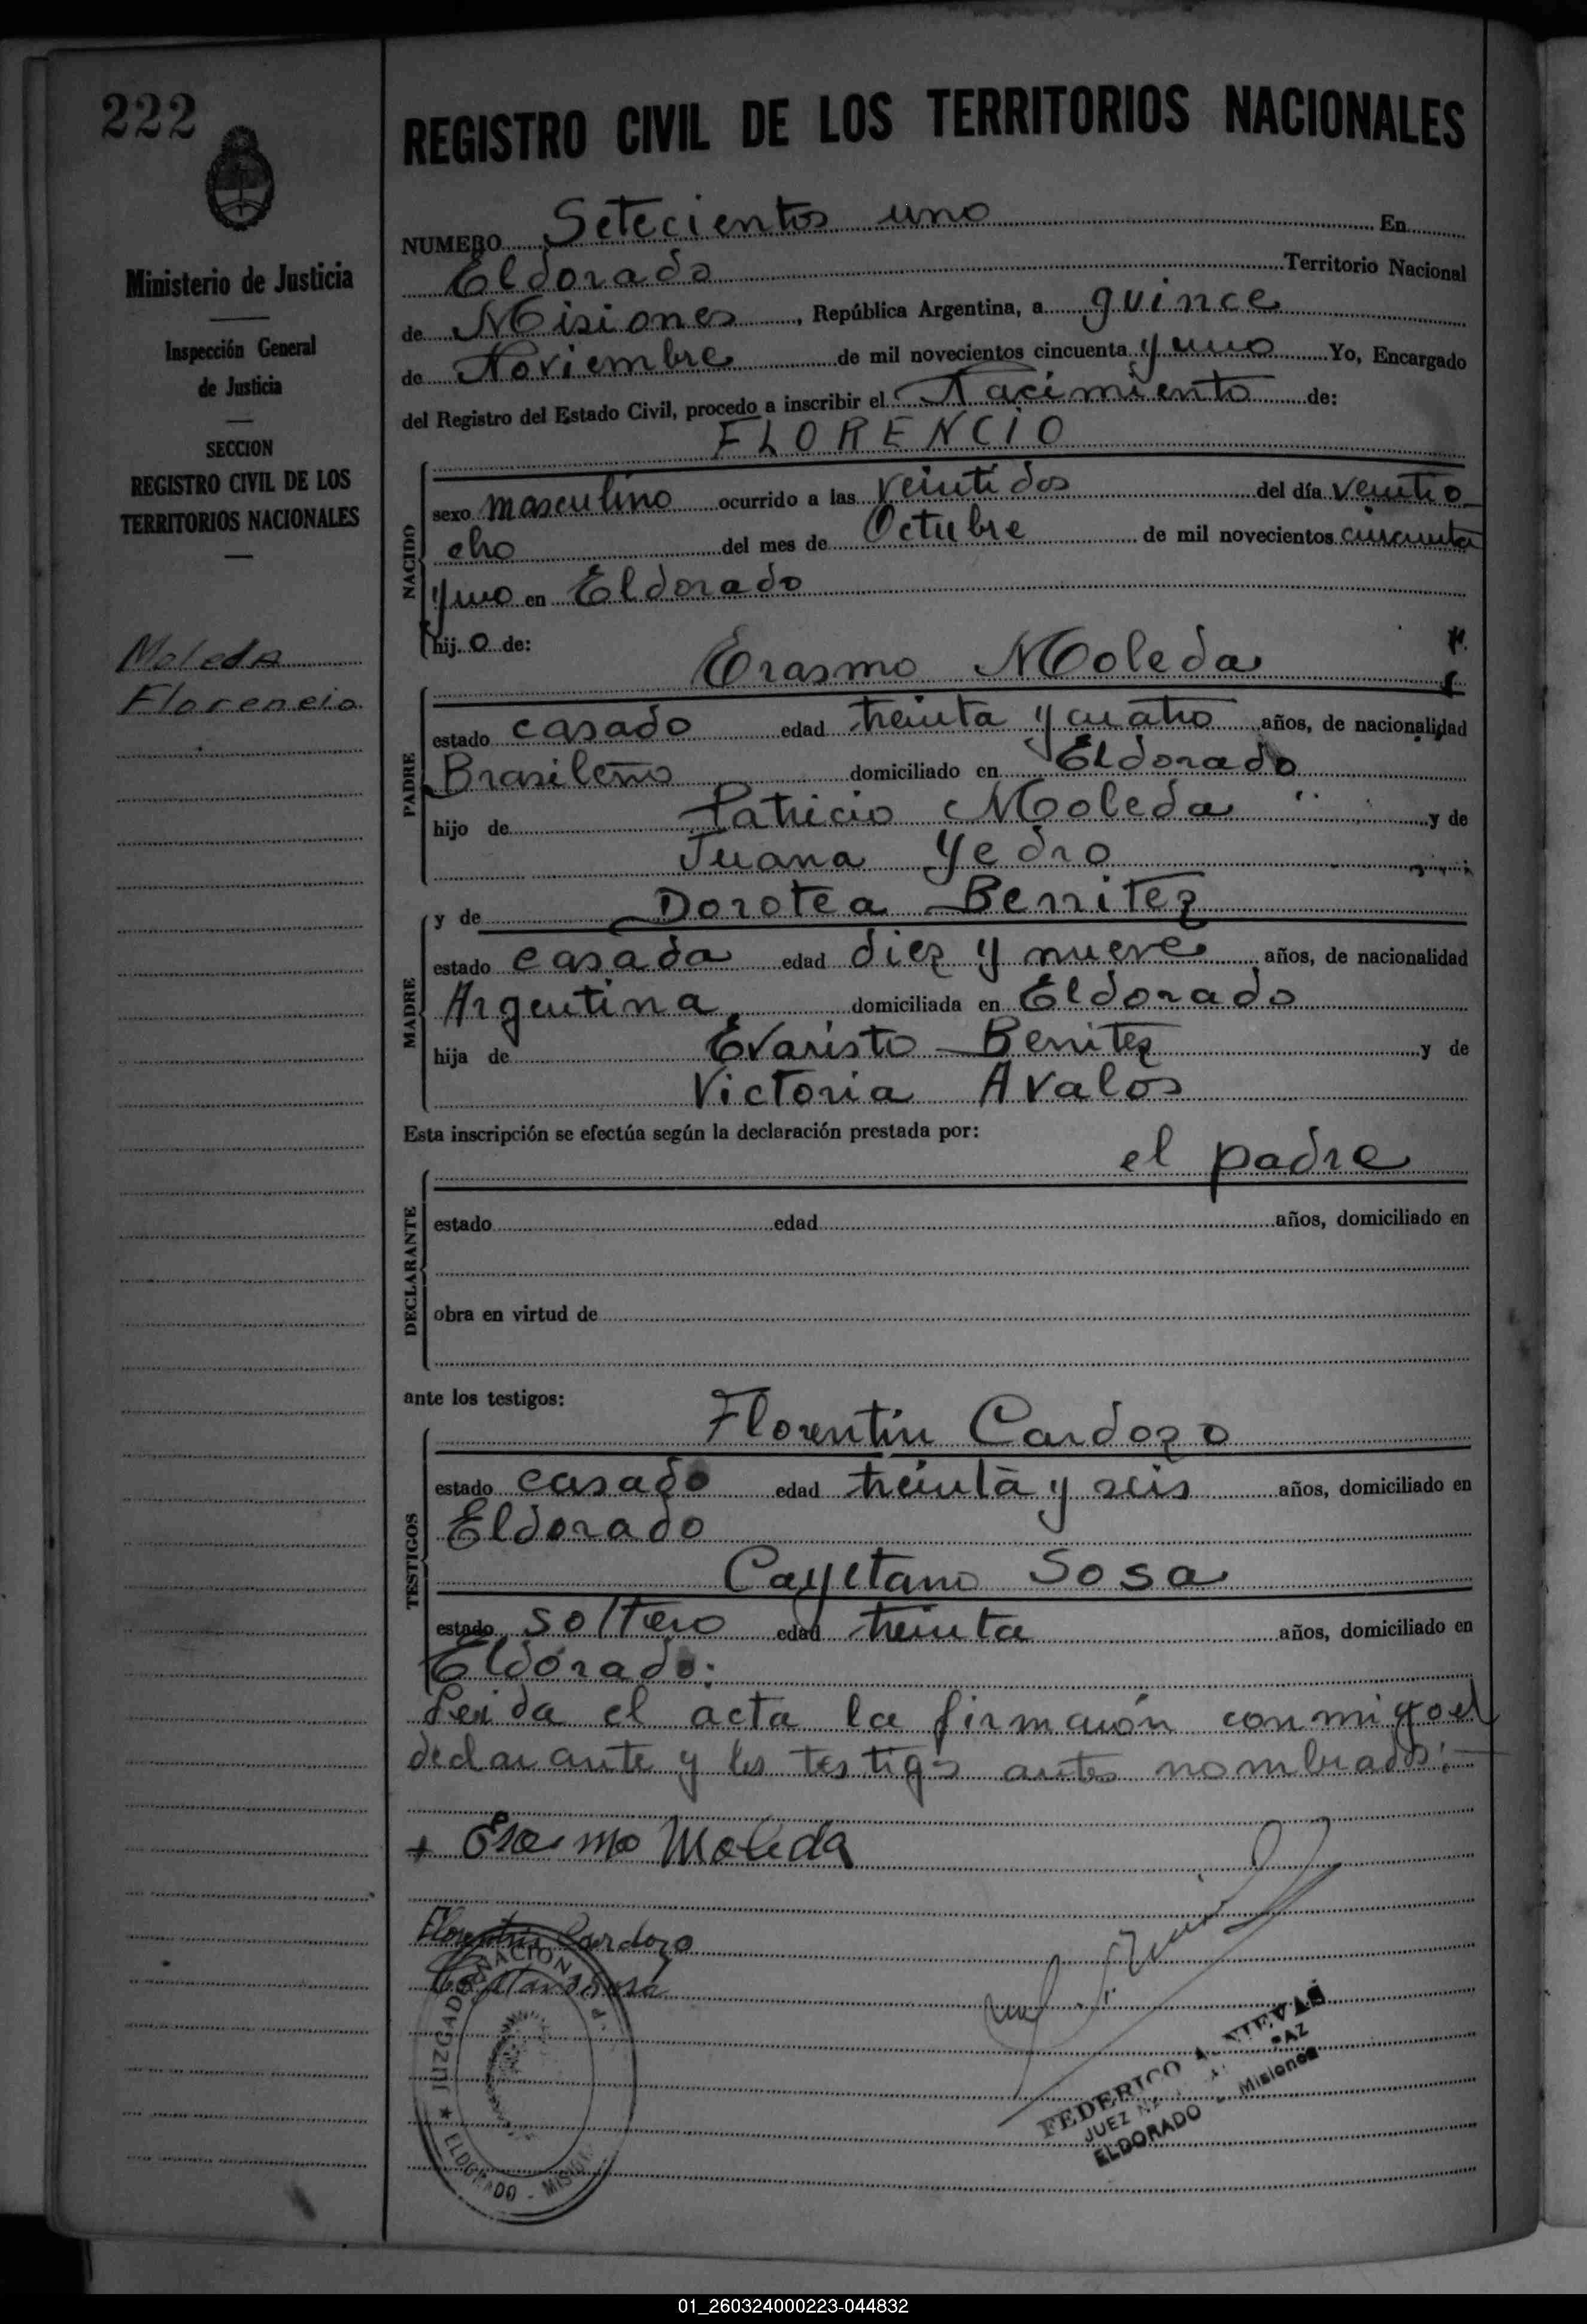 222
Ministerio de Justicia
Inspección General
de Justicia
SECCION
REGISTRO CIVIL DE LOS
TERRITORIOS NACIONALES
Moleda
Florencio
REGISTRO CIVIL DE LOS TERRITORIOS NACIONALES
NUMERO Setecientos uno En
Eldorado Territorio Nacional
de Misiones, República Argentina, a quince
de Noviembre de mil novecientos cincuenta y uno Yo, Encargado
del Registro del Estado Civil, procedo a inscribir el Nacimiento de:
FLORENCIO
NACIDO
sexo masculino ocurrido a las veinti dos del día veintio
cho del mes de Octubre de mil novecientos cincuenta
y uno en Eldorado
hij o de:
Erasmo Moleda
PADRE
estado casado edad treinta y cuatro años, de nacionalidad
Brasileño domiciliado en Eldorado
hijo de Patricio Moleda y de
Juana Yedro
y de Dorotea Benitez
MADRE
estado casada edad diez y nueve años, de nacionalidad
Argentina domiciliada en Eldorado
hija de Evaristo Benitez y de
Victoria Avalos
Esta inscripción se efectúa según la declaración prestada por:
el padre
DECLARANTE
estado edad años, domiciliado en
obra en virtud de
ante los testigos:
Florentin Cardozo
TESTIGOS
estado casado edad treinta y seis años, domiciliado en
Eldorado
Cayetano Sosa
estado soltero edad treinta años, domiciliado en
Eldorado.
Leida el acta la firmaron conmigo el
declarante y los testigos antes nombrados:
+ Erasmo Moleda
Florentin Cardozo
JUZGADO NACION P.
ELDORADO - MISION
FEDERICO A. NIEVAS
JUEZ PAZ
ELDORADO - Misiones
01_260324000223-044832